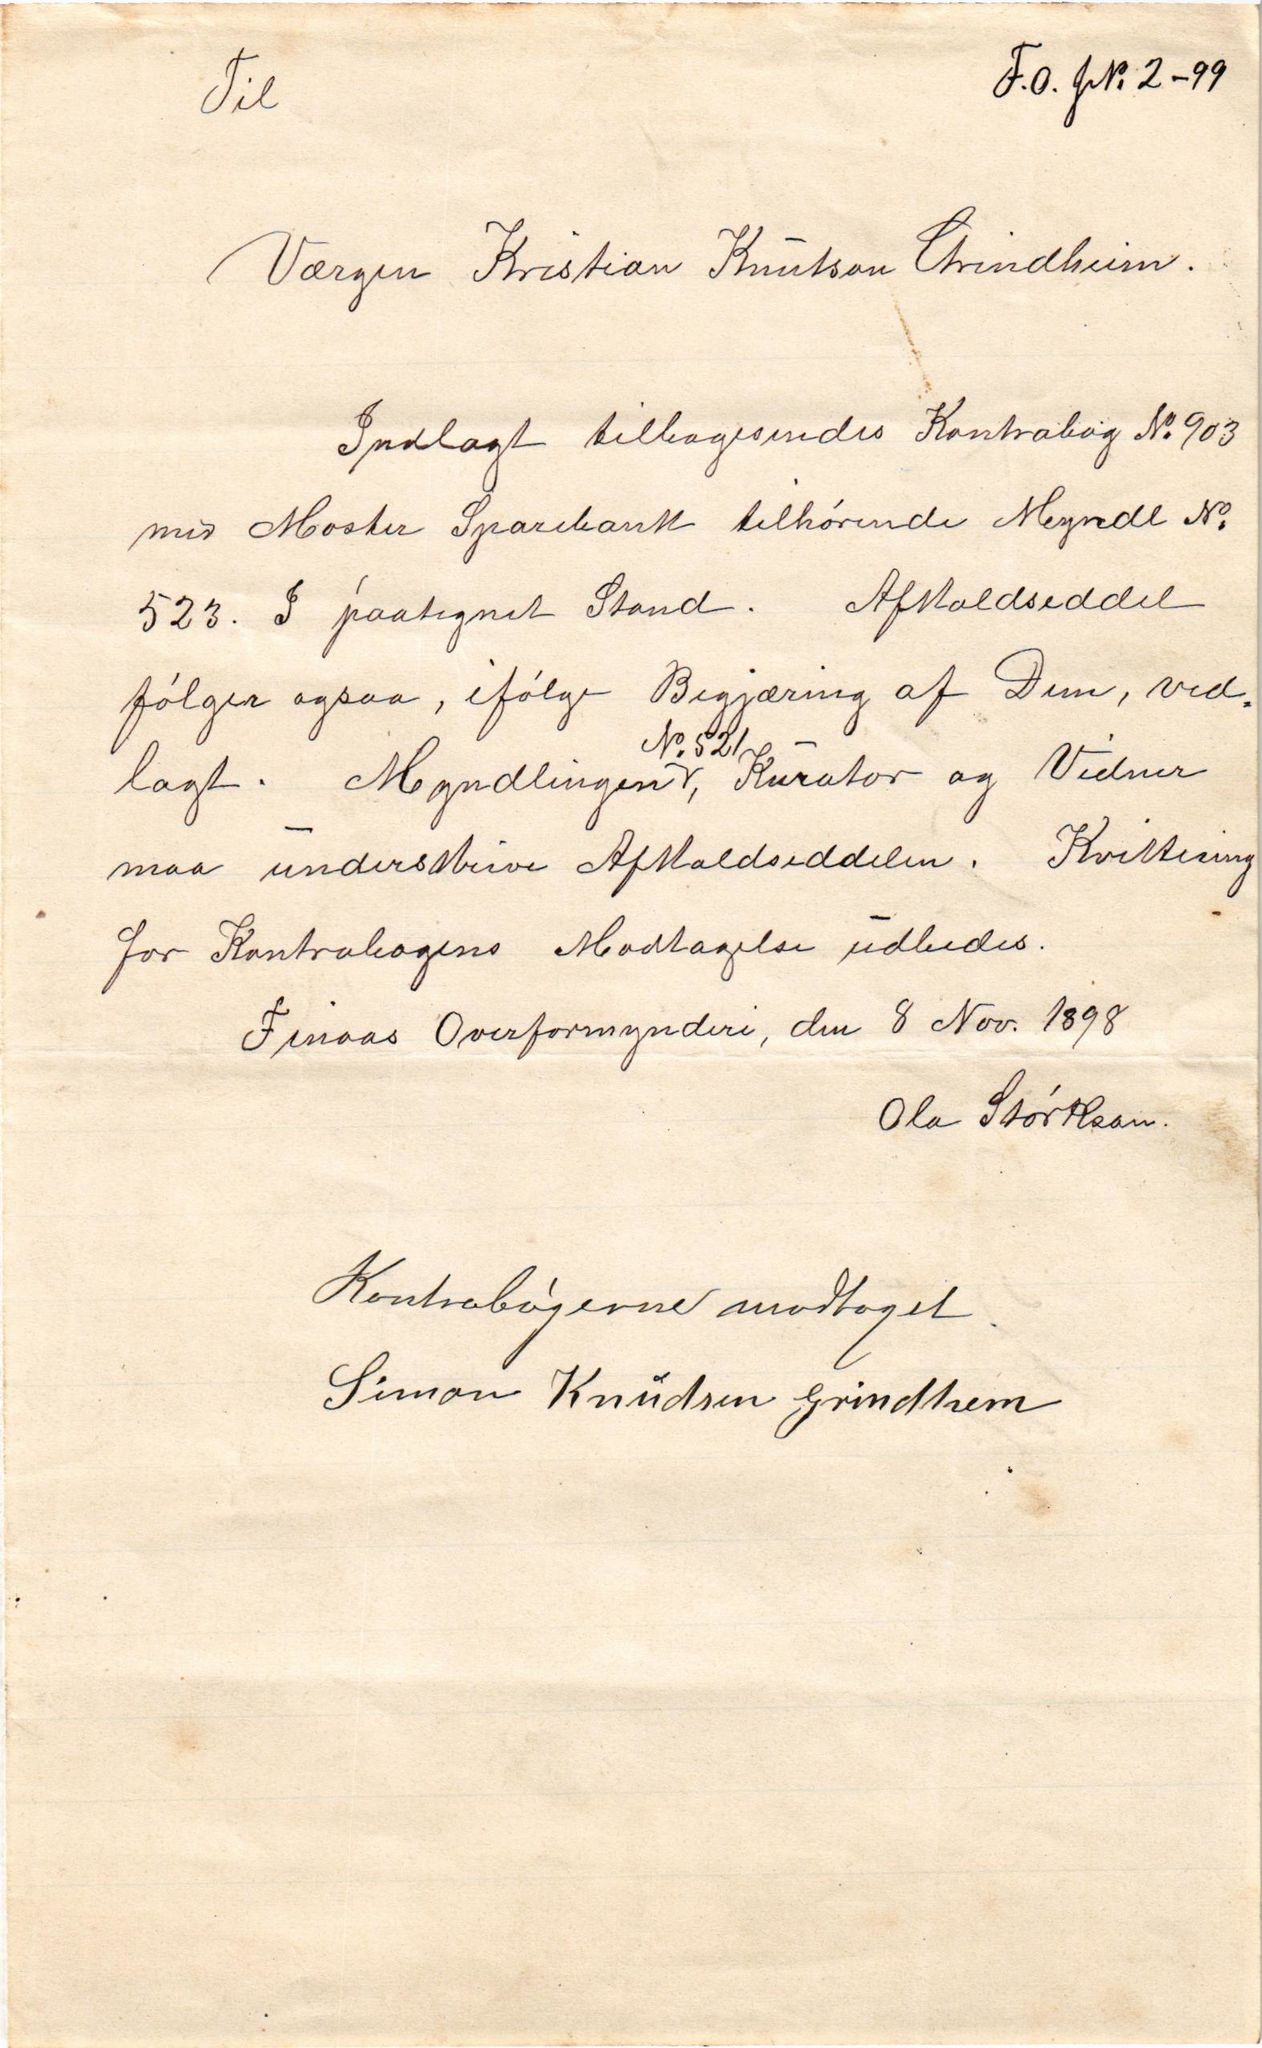 Til
F.O. JN. 2-99
Værgen Kristian Knutson Grindheim.
Indlagt tilbagesendes Kontrabog No. 903
med Moster Sparebank tilhörende Myndl No.
523. I paategnet Stand. Afkaldseddel
fölger ogsaa, ifölge Begjæring af Dem, ved-
lagt. Myndlingen No. 521, Kurator og Vidner
maa underskrive Afkaldseddelen. Kvittering
for Kontrabogens Modtagelse udbedes.
Finaas Overformynderi, den 8 Nov. 1898
Ola Störkson.
Kontrabögerne modtaget.
Simon Knudsen Grindhem